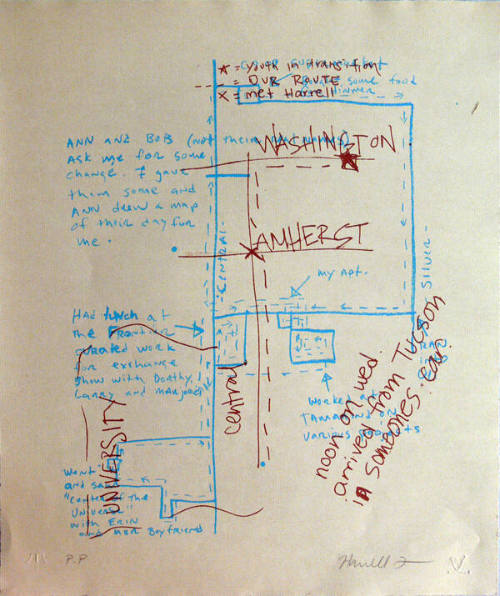 ★ = youth in transition
= OUR ROUTE
X = met Harrell
some food
dinner
ANN AND BOB (not their
ask me for some
change. I gave
them some and
ANN drew a map
of their day for
me.
WASHINGTON
AMHERST
CENTRAL
SILVER
my Apt.
Had lunch at
the Frontier
work
for exchange
show with Dorthy,
Laney and
central
UNIVERSITY
Worked at
TAMARIND ON
various projects
noon on wed.
arrived from TUCSON
in someones car.
Went
and saw
"center of the
Universe"
with ERIN
and her Boyfriend
P.P
Harrell